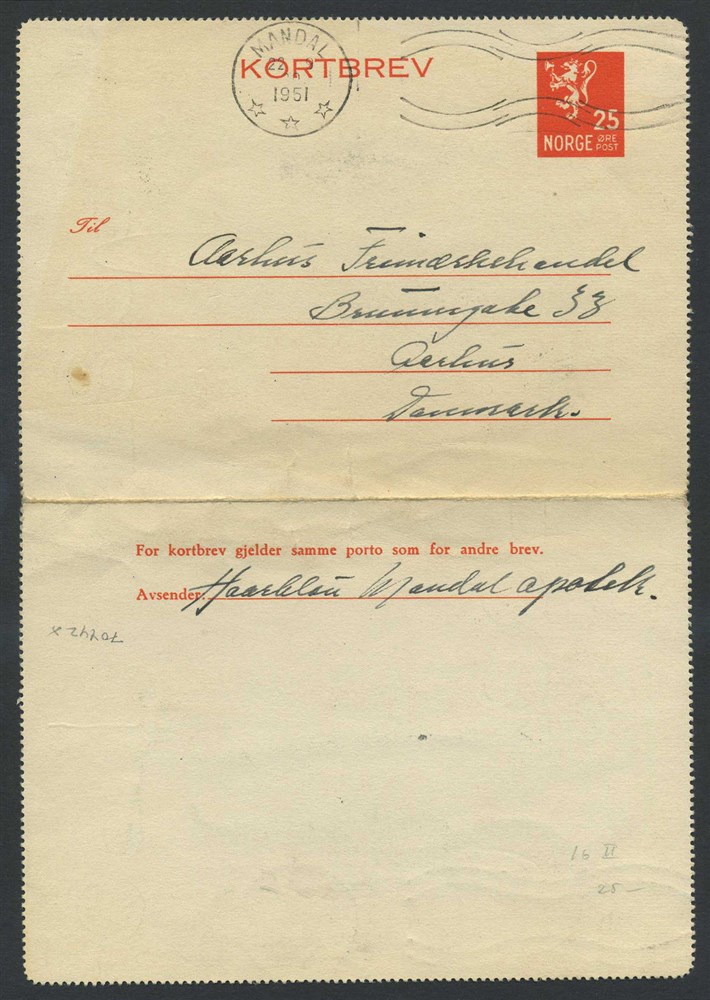 MANDAL
22
1951
KORTBREV
25
NORGE ØRE POST
Til
Aarhus Frimærkehandel
Bruunsgade 33
Aarhus
Danmark.
For kortbrev gjelder samme porto som for andre brev.
Avsender: Mandal apotek.
16 II
25—